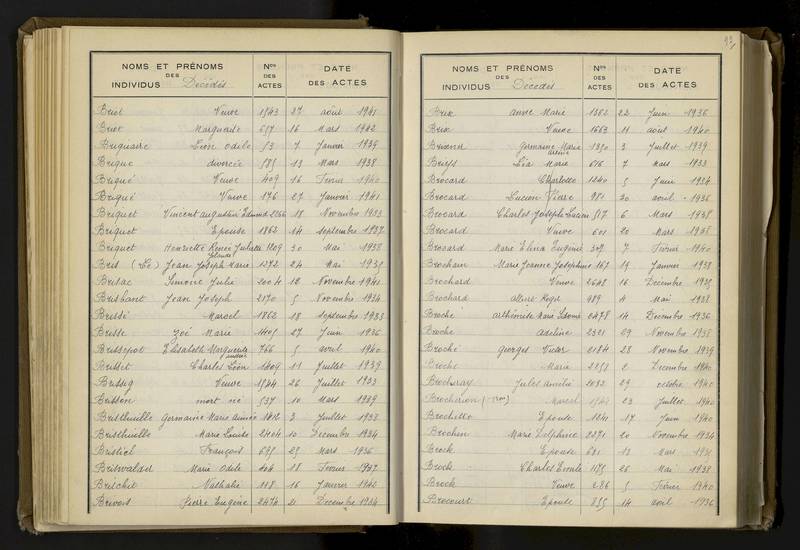 NOMS ET PRÉNOMS DES INDIVIDUS Décédés
Nos DES ACTES
DATE DES ACTES
Briot Veuve 1843 27 août 1941
Briot Marguerite 657 16 Mars 1942
Briquaire Léon Odile 53 7 Janvier 1939
Brique divorcée 585 13 Mars 1938
Briqué Veuve 409 16 Février 1940
Briqué Veuve 176 27 Janvier 1941
Briquet Vincent Augustin Edmond 2266 18 Novembre 1933
Briquet Epouse 1862 14 septembre 1937
Briquet Henriette Renée Juliette 1209 30 Mai 1938
Bris (Le) Jean Joseph Marie 1272 24 Mai 1935
Brisac Simone Julie 2004 12 Novembre 1941
Brishant Jean Joseph 2170 5 Novembre 1934
Brissé Marcel 1862 18 septembre 1933
Brisse Zoé Marie 1405 27 Juin 1936
Brissepot Elisabeth Marguerite 766 5 avril 1940
Brisset Charles Léon 1409 11 Juillet 1939
Brisseg Veuve 1544 26 Juillet 1933
Brisson mort né 537 10 Mars 1939
Bristhuille Germaine Marie Aimée 1412 3 Juillet 1933
Bristhuille Marie Louise 2404 10 Décembre 1934
Bristiel François 695 25 Mars 1936
Britswalder Marie Odile 404 18 Février 1937
Britchit Nathalie 118 16 Janvier 1942
Brivois Pierre Eugène 2474 21 Décembre 1934
93
NOMS ET PRÉNOMS DES INDIVIDUS Décédés
Nos DES ACTES
DATE DES ACTES
Brix Anne Marie 1362 22 Juin 1936
Brix Veuve 1663 11 août 1940
Germaine Marie 1350 3 Juillet 1939
Léa Marie 616 7 Mars 1933
Brocard Charlotte 1240 5 Juin 1934
Brocard Lucien Pierre 981 20 avril 1936
Brocard Charles Joseph Lucien 517 6 Mars 1938
Brocard Veuve 602 20 Mars 1938
Brocard Marie Elina Eugénie 307 7 Février 1940
Brochain Marie Jeanne Joséphine 167 19 Janvier 1938
Brochard Veuve 2648 16 Décembre 1935
Brochard Albert Régis 989 4 Mai 1938
Broché Arthémise Marie Léonie 2478 14 Décembre 1936
Broche Adeline 2321 29 Novembre 1938
Broché Georges Victor 2184 28 Novembre 1939
Broche Marie 2 Décembre 1940
Brochray Jules Amélie 2032 29 octobre 1940
Brocherion Marcel 23 Juillet 1940
Brochetto Epouse 1241 17 Juin 1940
Brochin Marie Delphine 2271 20 Novembre 1934
Brock Epouse 621 13 Mars
Brock Charles Emile 1175 26 Mai 1938
Brock Veuve 286 5 Février 1940
Brocourt Epouse 835 14 avril 1936